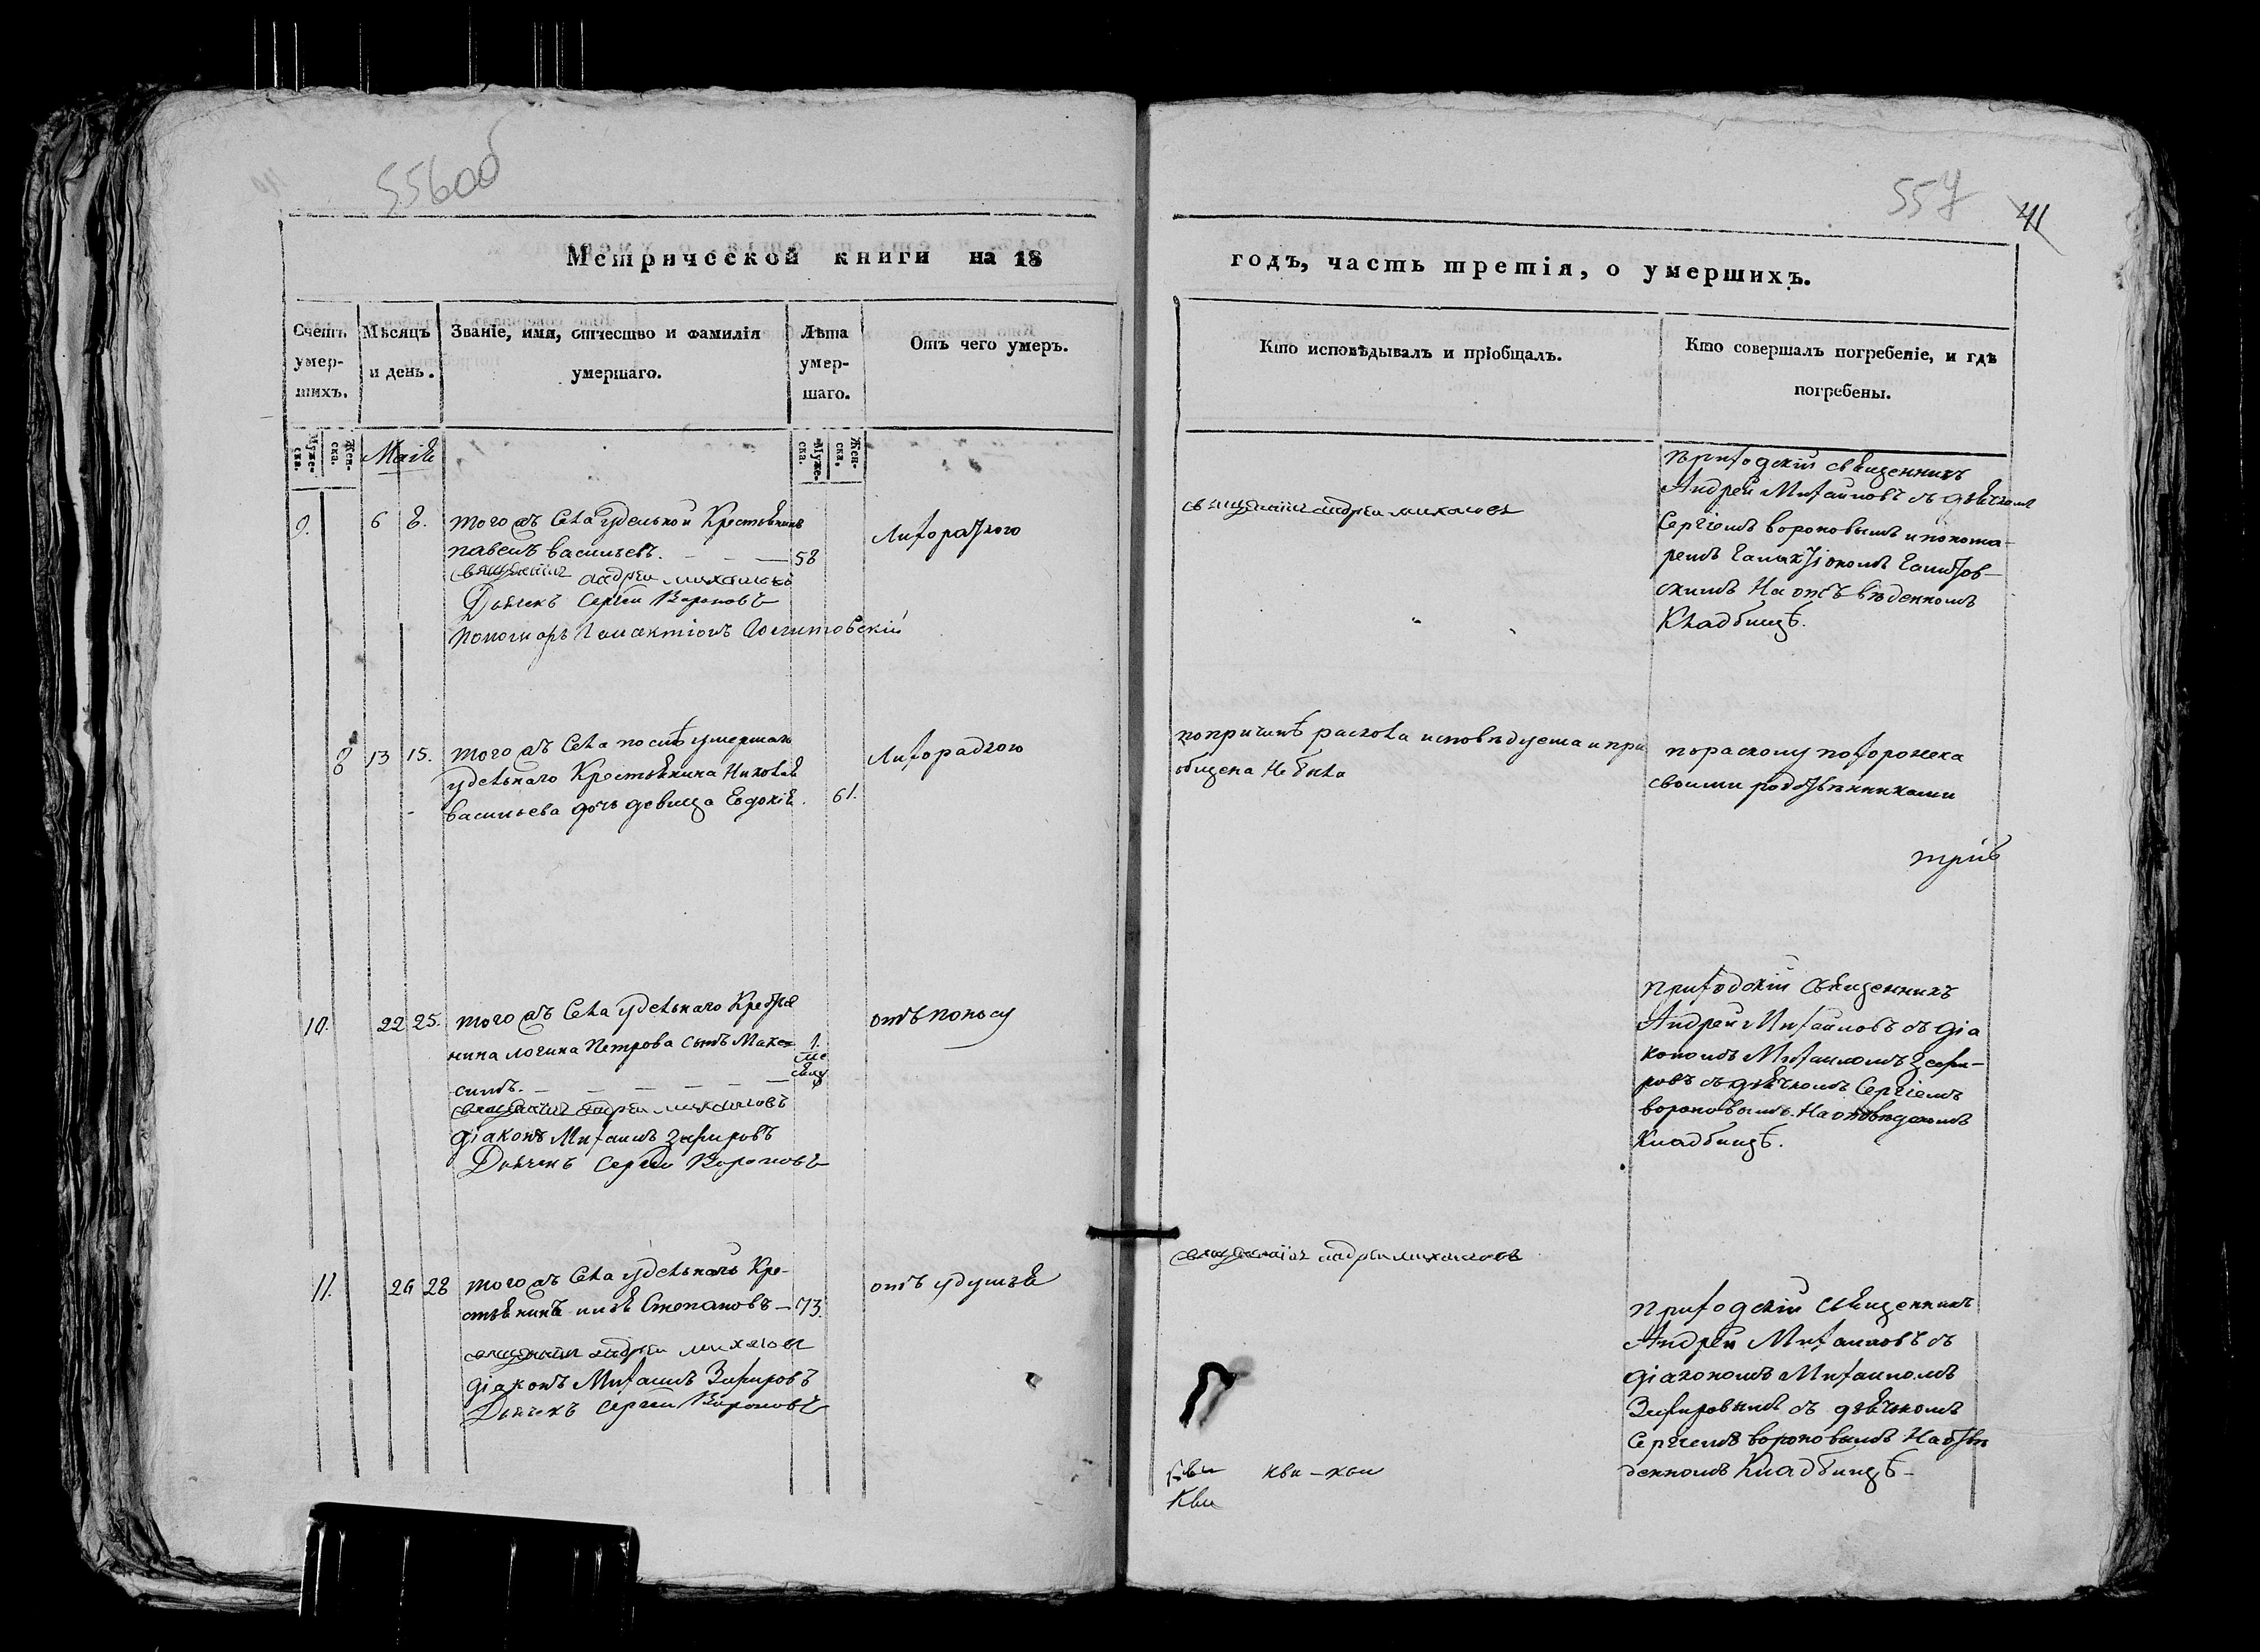 556об
557
41
Метрической книги на 18
годъ, часть третія, о умершихъ.
Счетъ умер-шихъ.
Мѣсяцъ и день.
Званіе, имя, отчество и фамилія умершаго.
Лѣта умер-шаго.
Отъ чего умеръ.
Кто исповѣдывалъ и пріобщалъ.
Кто совершалъ погребеніе, и гдѣ погребены.
Муже-ска.
Жен-ска.
Муже-ска.
Жен-ска.
Маія
9.
6
8.
того жъ села удельной Крестьянинъ
павелъ васильевъ.
58
священникъ андрей михайловъ
Дьячекъ Сергей Вороновъ
пономарь Галактіонъ
Лихорадкою
священникъ андрей михайловъ
приходскій священникъ
Андрей Михайловъ съ дьячкомъ
Сергіемъ вороновымъ и понома-
ремъ Галактіономъ
скимъ На отъ вѣденномъ
Кладбищѣ.
8
13
15.
того жъ села послѣ умершаго
удельнаго Крестьянина Николая
васильева дочь девица Евдокія.
61.
Лихорадкою
по причинѣ раскола исповѣдуема и при
общена не была
по расколу похоронена
своими родственниками
трій
10.
22
25.
того жъ села удельнаго Крестья
нина логина Петрова сынъ Мак
симъ.
1.
ме
сяц
священникъ андрей михайловъ
діаконъ Михаилъ Зефировъ
Дьячекъ Сергей Вороновъ
отъ поносу
приходскій священникъ
Андрей Михайловъ съ діа
кономъ Михаиломъ Зефи-
ровъ съ дьячкомъ Сергіемъ
вороновымъ. На отведеномъ
Кладбищѣ.
11.
26
28
того жъ села удельнаго Кре-
стьянинъ Степановъ
73.
священникъ андрей михайловъ
діаконъ Михаилъ Зефировъ
Дьячекъ Сергей Вороновъ
отъ удушья
священникъ андрей михайловъ
приходскій священникъ
Андрей Михайловъ съ
діакономъ Михаиломъ
Зефировымъ съ дьячкомъ
Сергіемъ вороновымъ На отве
денномъ Кладбищѣ